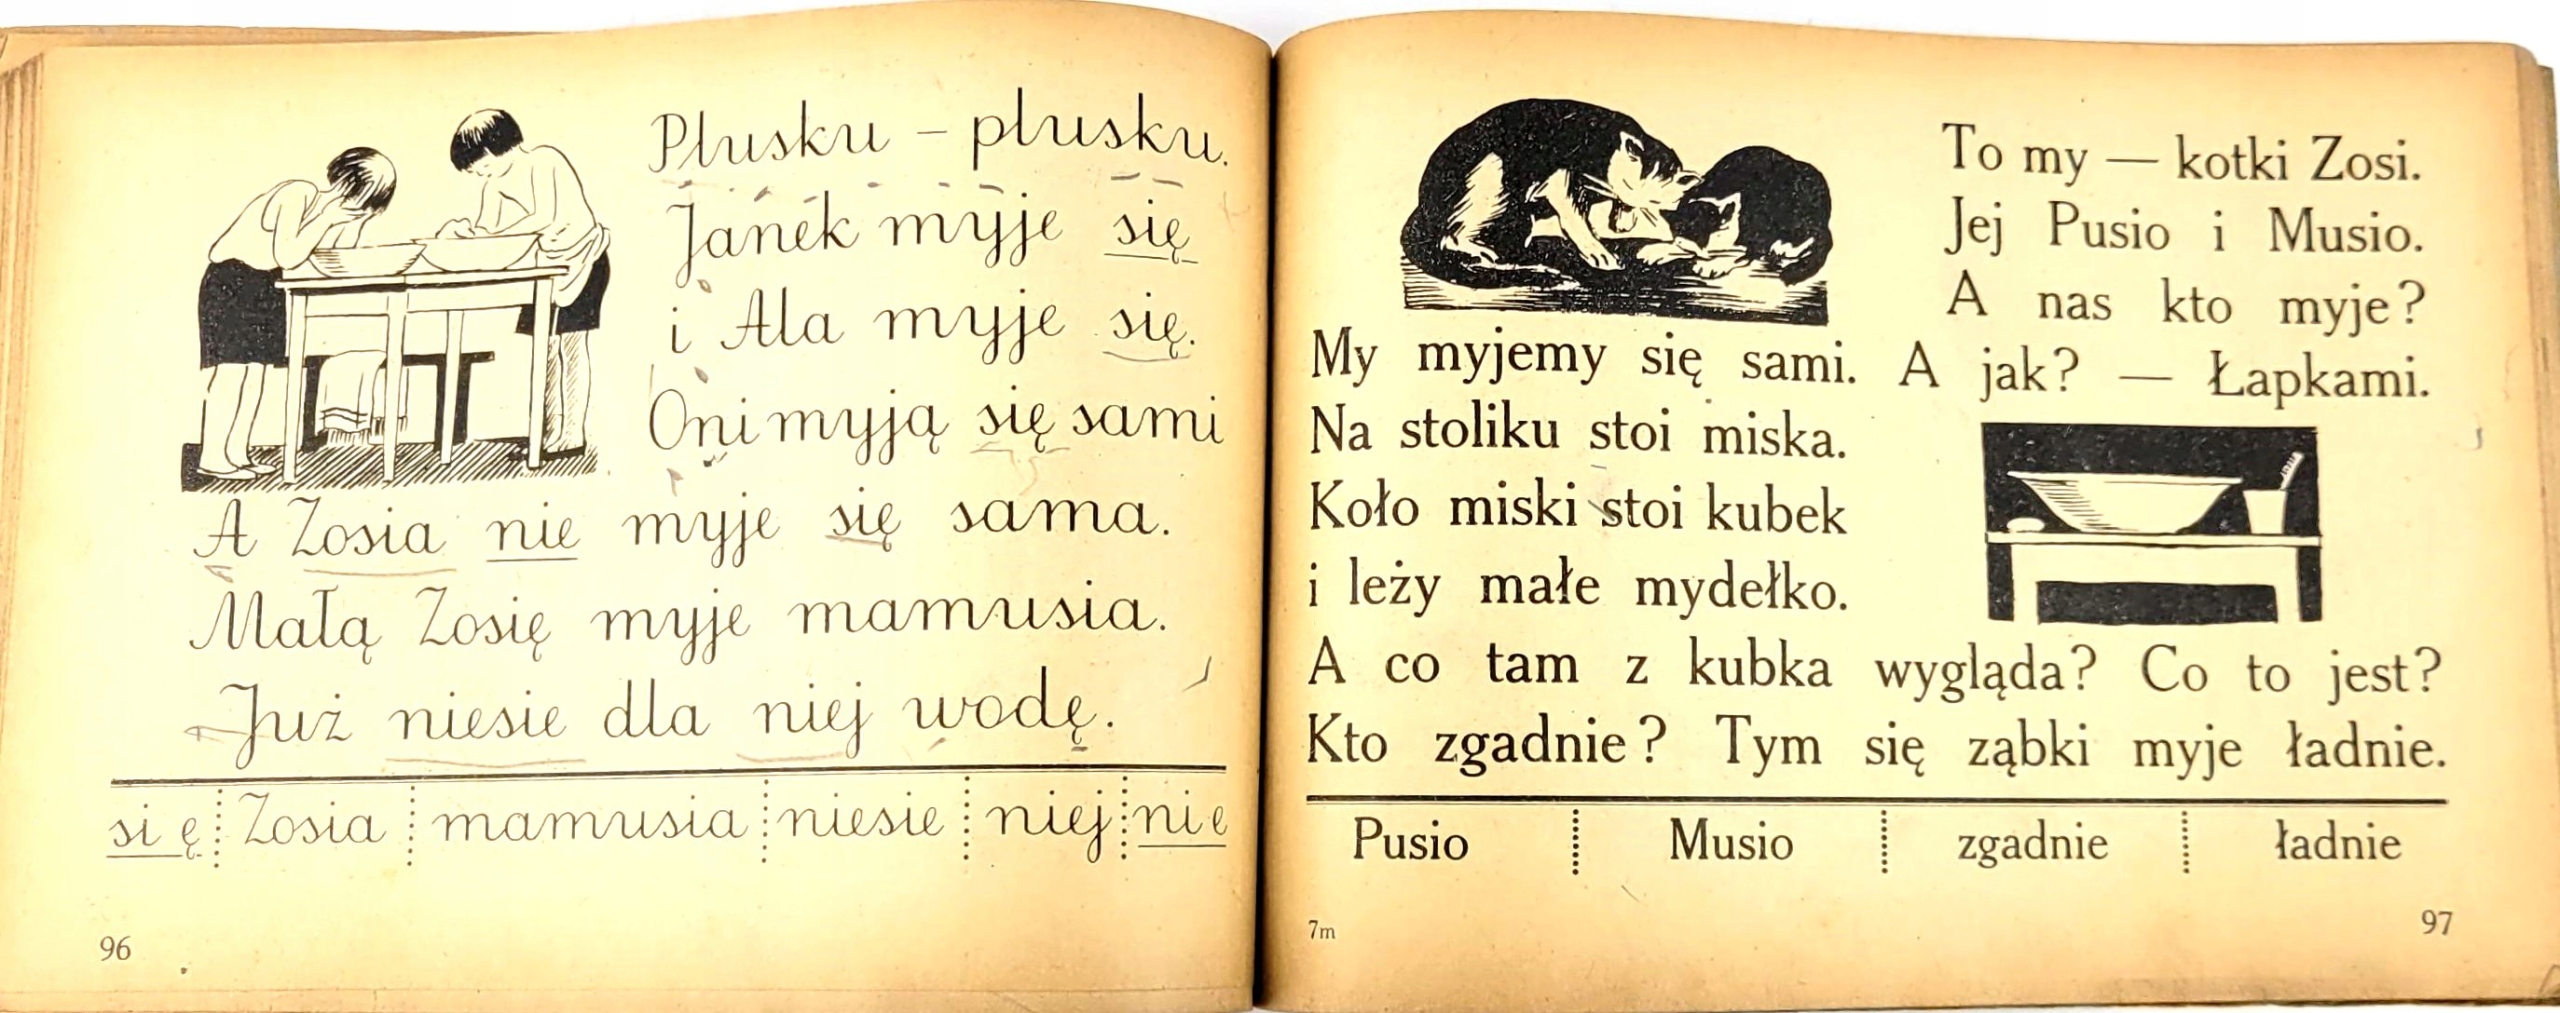 Plusku – plusku.
Janek myje się
i Ala myje się.
Oni myją się sami
A Zosia nie myje się sama.
Małą Zosię myje mamusia.
Już niesie dla niej wodę.
się Zosia mamusia niesie niej nie
96
To my — kotki Zosi.
Jej Pusio i Musio.
A nas kto myje?
My myjemy się sami. A jak? — Łapkami.
Na stoliku stoi miska.
Koło miski stoi kubek
i leży małe mydełko.
A co tam z kubka wygląda? Co to jest?
Kto zgadnie? Tym się ząbki myje ładnie.
Pusio Musio zgadnie ładnie
7m
97